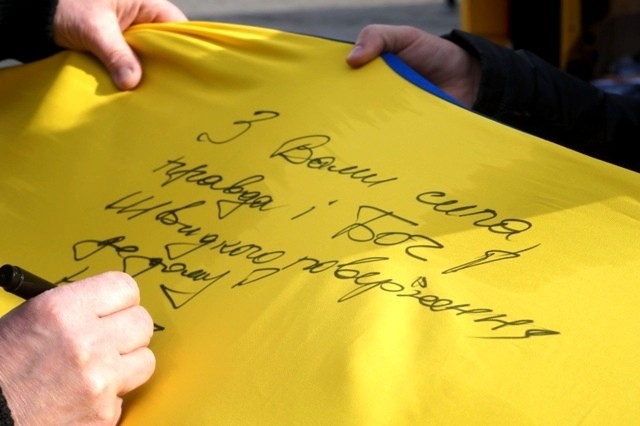 З Вами сила,
правда і Бог!
Швидкого повернення
додому!